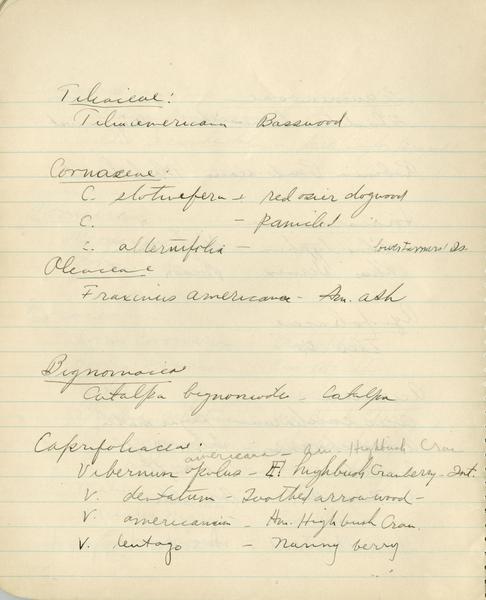 Tiliaceae:
Tilia americana Basswood
Cornaceae:
C. stolonifera - red osier dogwood
C. - panicled
C. alternifolia -
Oleaceae
Fraxinus americana - Am. ash
Bignoniacea
Catalpa bignonioides - Catalpa
Caprifoliaceae:
americana - Am. Highbush Cran
Vibernum opulus - E. highbush Cranberry - Int.
V. dentatum - Toothed arrowwood -
V. americanum - Am. Highbush Cran.
V. lentago - Nanny berry